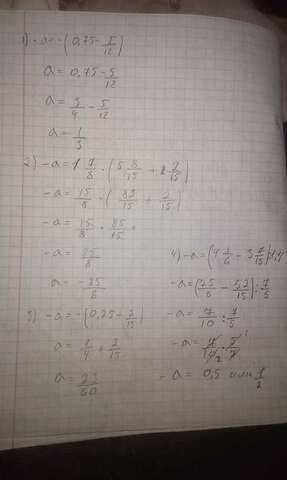 1) -a = -(0,75 - 5/12)
a = 0,75 - 5/12
a = 3/4 - 5/12
a = 1/3
2) -a = 1 7/8 · (5 8/15 + 2/15)
-a = 15/8 · (83/15 + 2/15)
-a = 15/8 · 85/15
-a = 85/8
a = -85/8
3) -a = -(0,25 - 2/15)
a = 1/4 + 2/15
a = 23/60
4) -a = (4 1/6 - 3 7/15) : 1,4
-a = (25/6 - 52/15) : 7/5
-a = 7/10 : 7/5
-a = 7/10 · 5/7
-a = 0,5 или 1/2